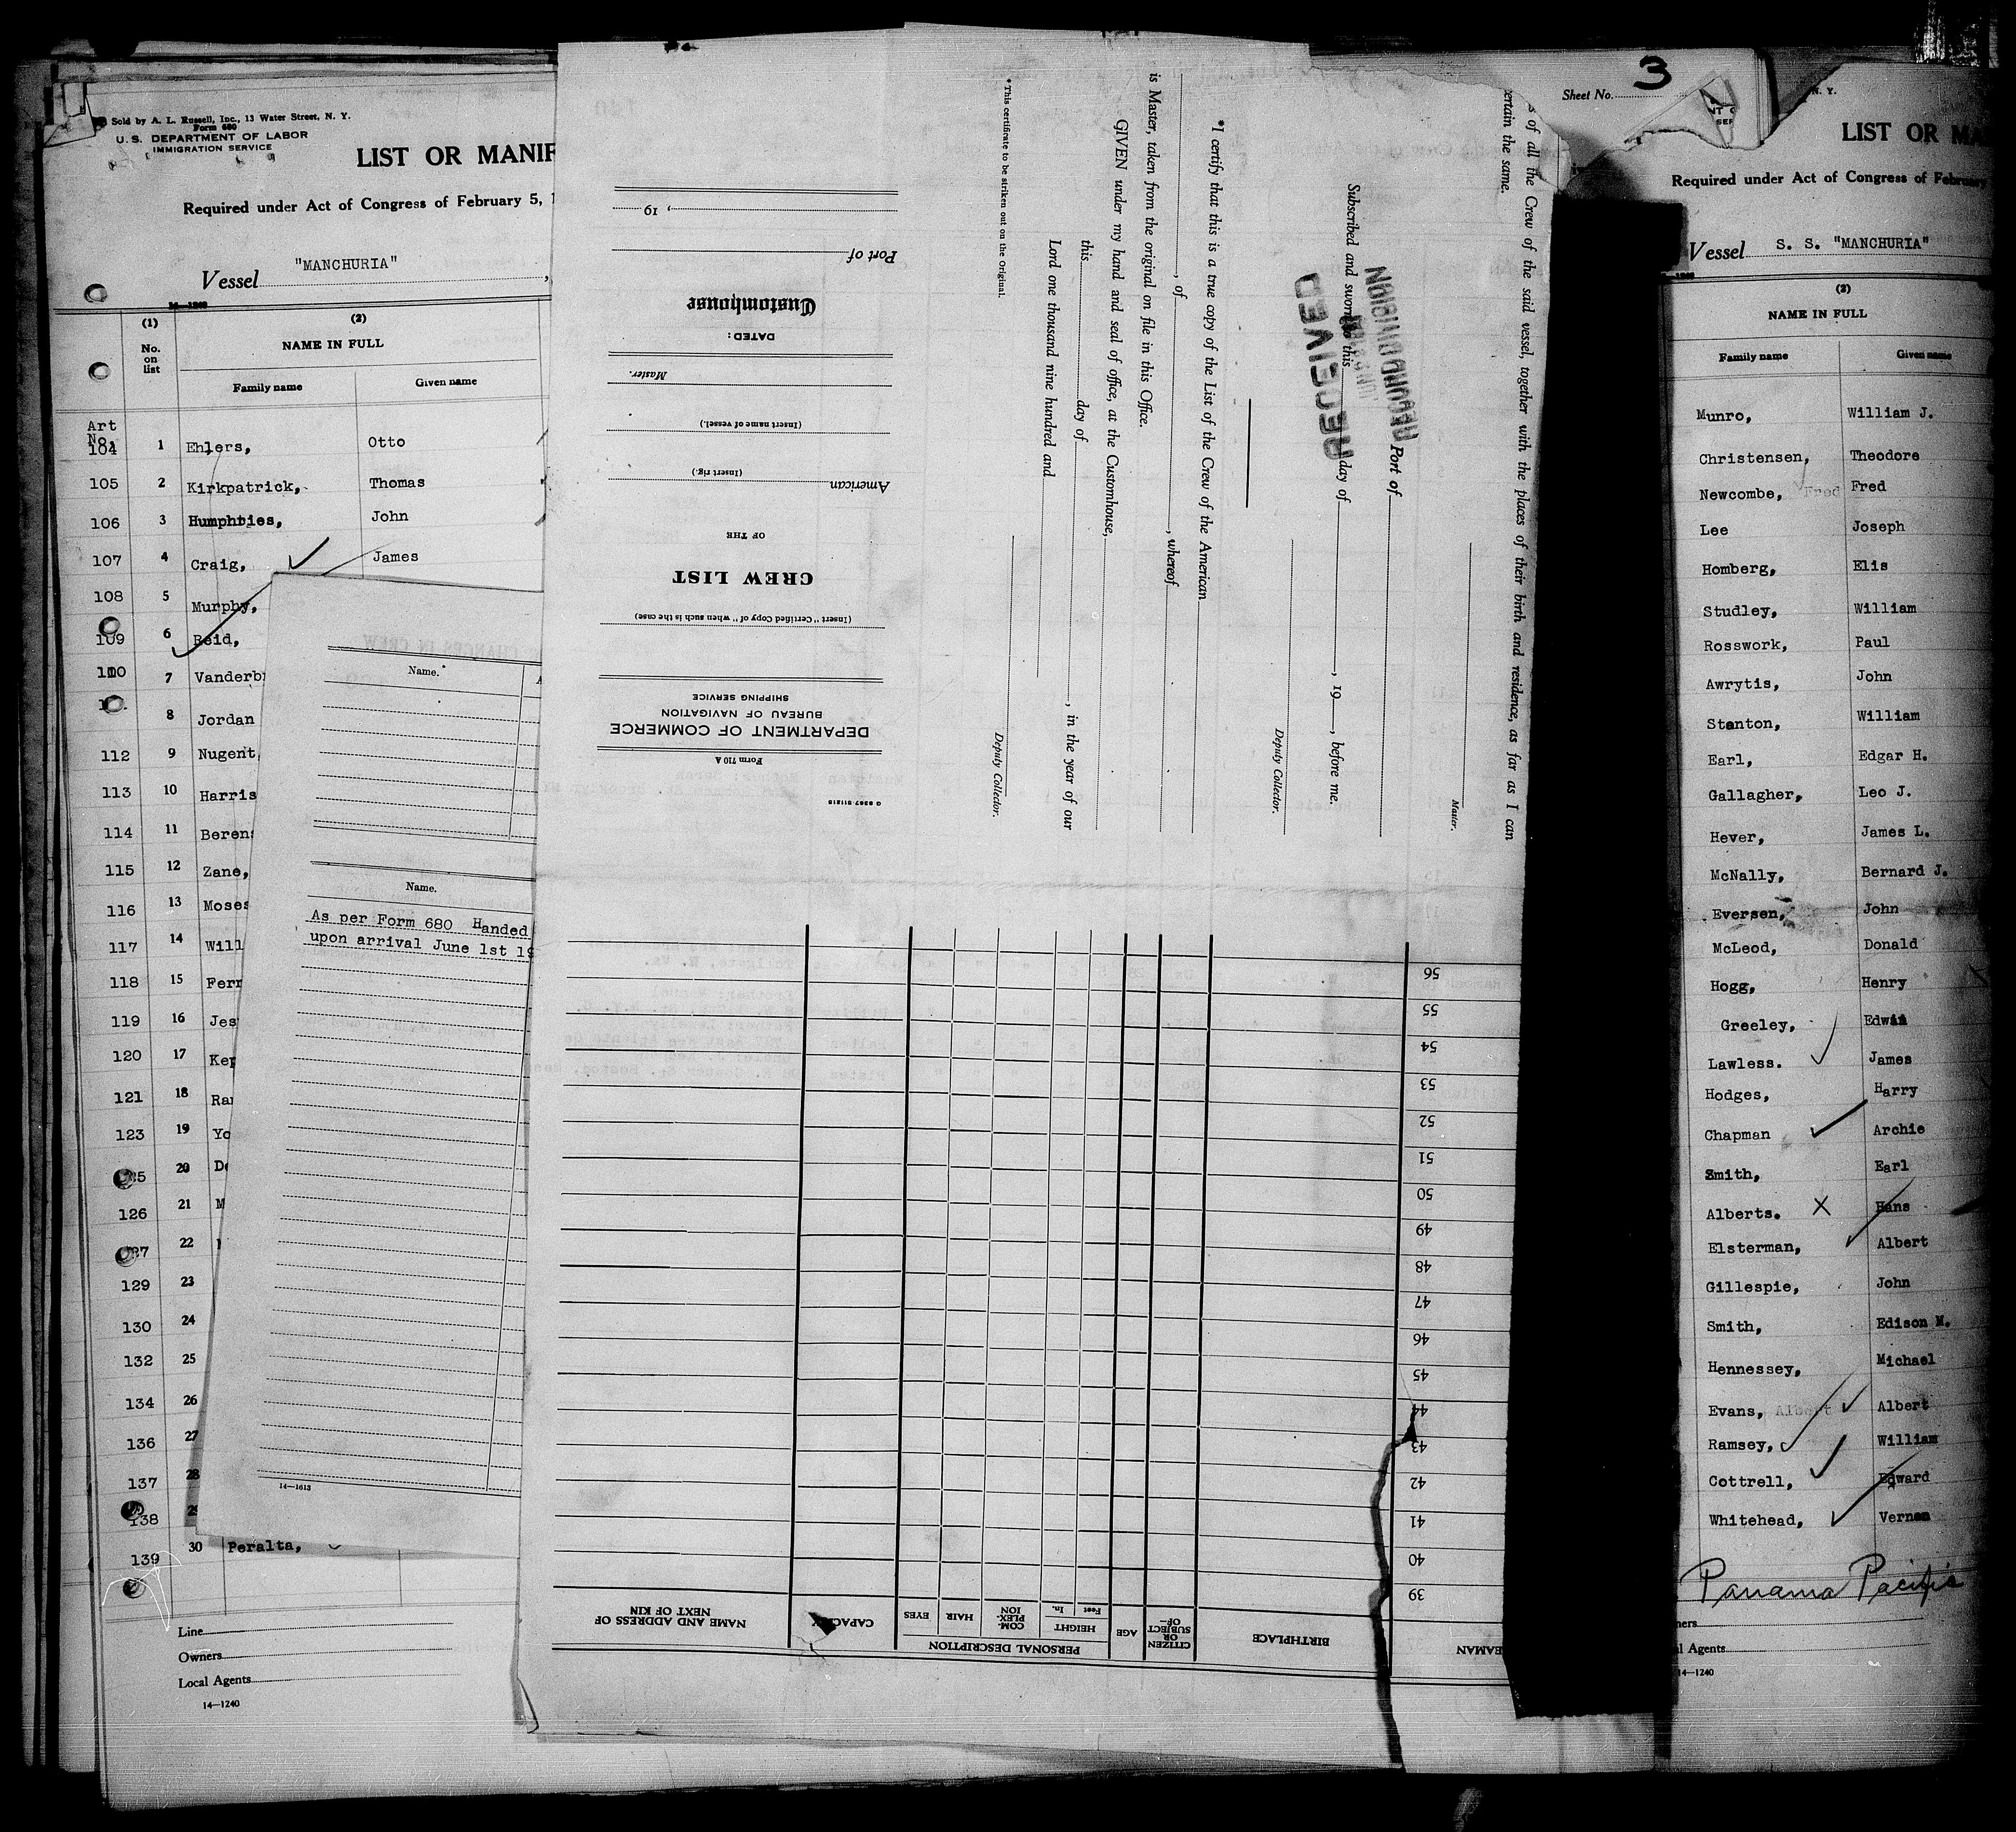 Sold by A. L. Russell, Inc., 13 Water Street, N. Y.
Form 680
U. S. DEPARTMENT OF LABOR
IMMIGRATION SERVICE
LIST OR MANIF
Required under Act of Congress of February 5, 1
Vessel "MANCHURIA"
(1) (2)
No. on list NAME IN FULL
Family name Given name
Art
No.
104 1 Ehlers, Otto
105 2 Kirkpatrick, Thomas
106 3 Humphries, John
107 4 Craig, James
108 5 Murphy,
109 6 Reid,
110 7 Vanderb
8 Jordan
112 9 Nugent,
113 10 Harris
114 11 Beren
115 12 Zane,
116 13 Moses
117 14 Will
118 15 Fer
119 16 Jes
120 17 Kep
121 18 Ra
123 19 Yo
20 D
126 21 M
22
129 23
130 24
132 25
134 26
136 27
137 28
138 29
139 30 Peralta,
Line
Owners
Local Agents
14—1240
CHANGES IN CREW
Name.
Name.
As per Form 680 Handed
upon arrival June 1st 19
14—1613
Form 710 A
DEPARTMENT OF COMMERCE
BUREAU OF NAVIGATION
SHIPPING SERVICE
(Insert "Certified Copy of" when such is the case)
CREW LIST
OF THE
American
(Insert rig.)
(Insert name of vessel.)
Master.
DATED:
Customhouse
Port of
, 19
s of all the Crew of the said vessel, together with the places of their birth and residence, as far as I can
ertain the same.
Master.
Port of
Subscribed and sworn to this day of , 19 , before me.
RECEIVED
Deputy Collector.
*I certify that this is a true copy of the List of the Crew of the American
, whereof
, of
is Master, taken from the original on file in this Office.
GIVEN under my hand and seal of office, at the Customhouse,
this day of , in the year of our
Lord one thousand nine hundred and
Deputy Collector.
*This certificate to be striken out on the Original.
EAMAN
BIRTHPLACE
CITIZEN OR SUBJECT OF—
AGE
PERSONAL DESCRIPTION
HEIGHT
Feet In.
COM-PLEX-ION
HAIR
EYES
CAPACITY
NAME AND ADDRESS OF NEXT OF KIN
39
40
41
42
43
44
45
46
47
48
49
50
51
52
53
54
55
56
Sheet No. 3
N. Y.
LIST OR MA
Required under Act of Congress of February
Vessel S. S. "MANCHURIA"
(2)
NAME IN FULL
Family name Given name
Munro, William J.
Christensen, Theodore
Newcombe, Fred Fred
Lee Joseph
Homberg, Elis
Studley, William
Rosswork, Paul
Awrytis, John
Stanton, William
Earl, Edgar H.
Gallagher, Leo J.
Hever, James L.
McNally, Bernard J.
Eversen, John
McLeod, Donald
Hogg, Henry
Greeley, Edwin
Lawless. James
Hodges, Harry
Chapman Archie
Smith, Earl
Alberts. X Hans
Elsterman, Albert
Gillespie, John
Smith, Edison M.
Hennessey, Michael
Evans, Albert Albert
Ramsey, William
Cottrell, Edward
Whitehead, Vernon
Panama Pacific
ners
l Agents
14—1240